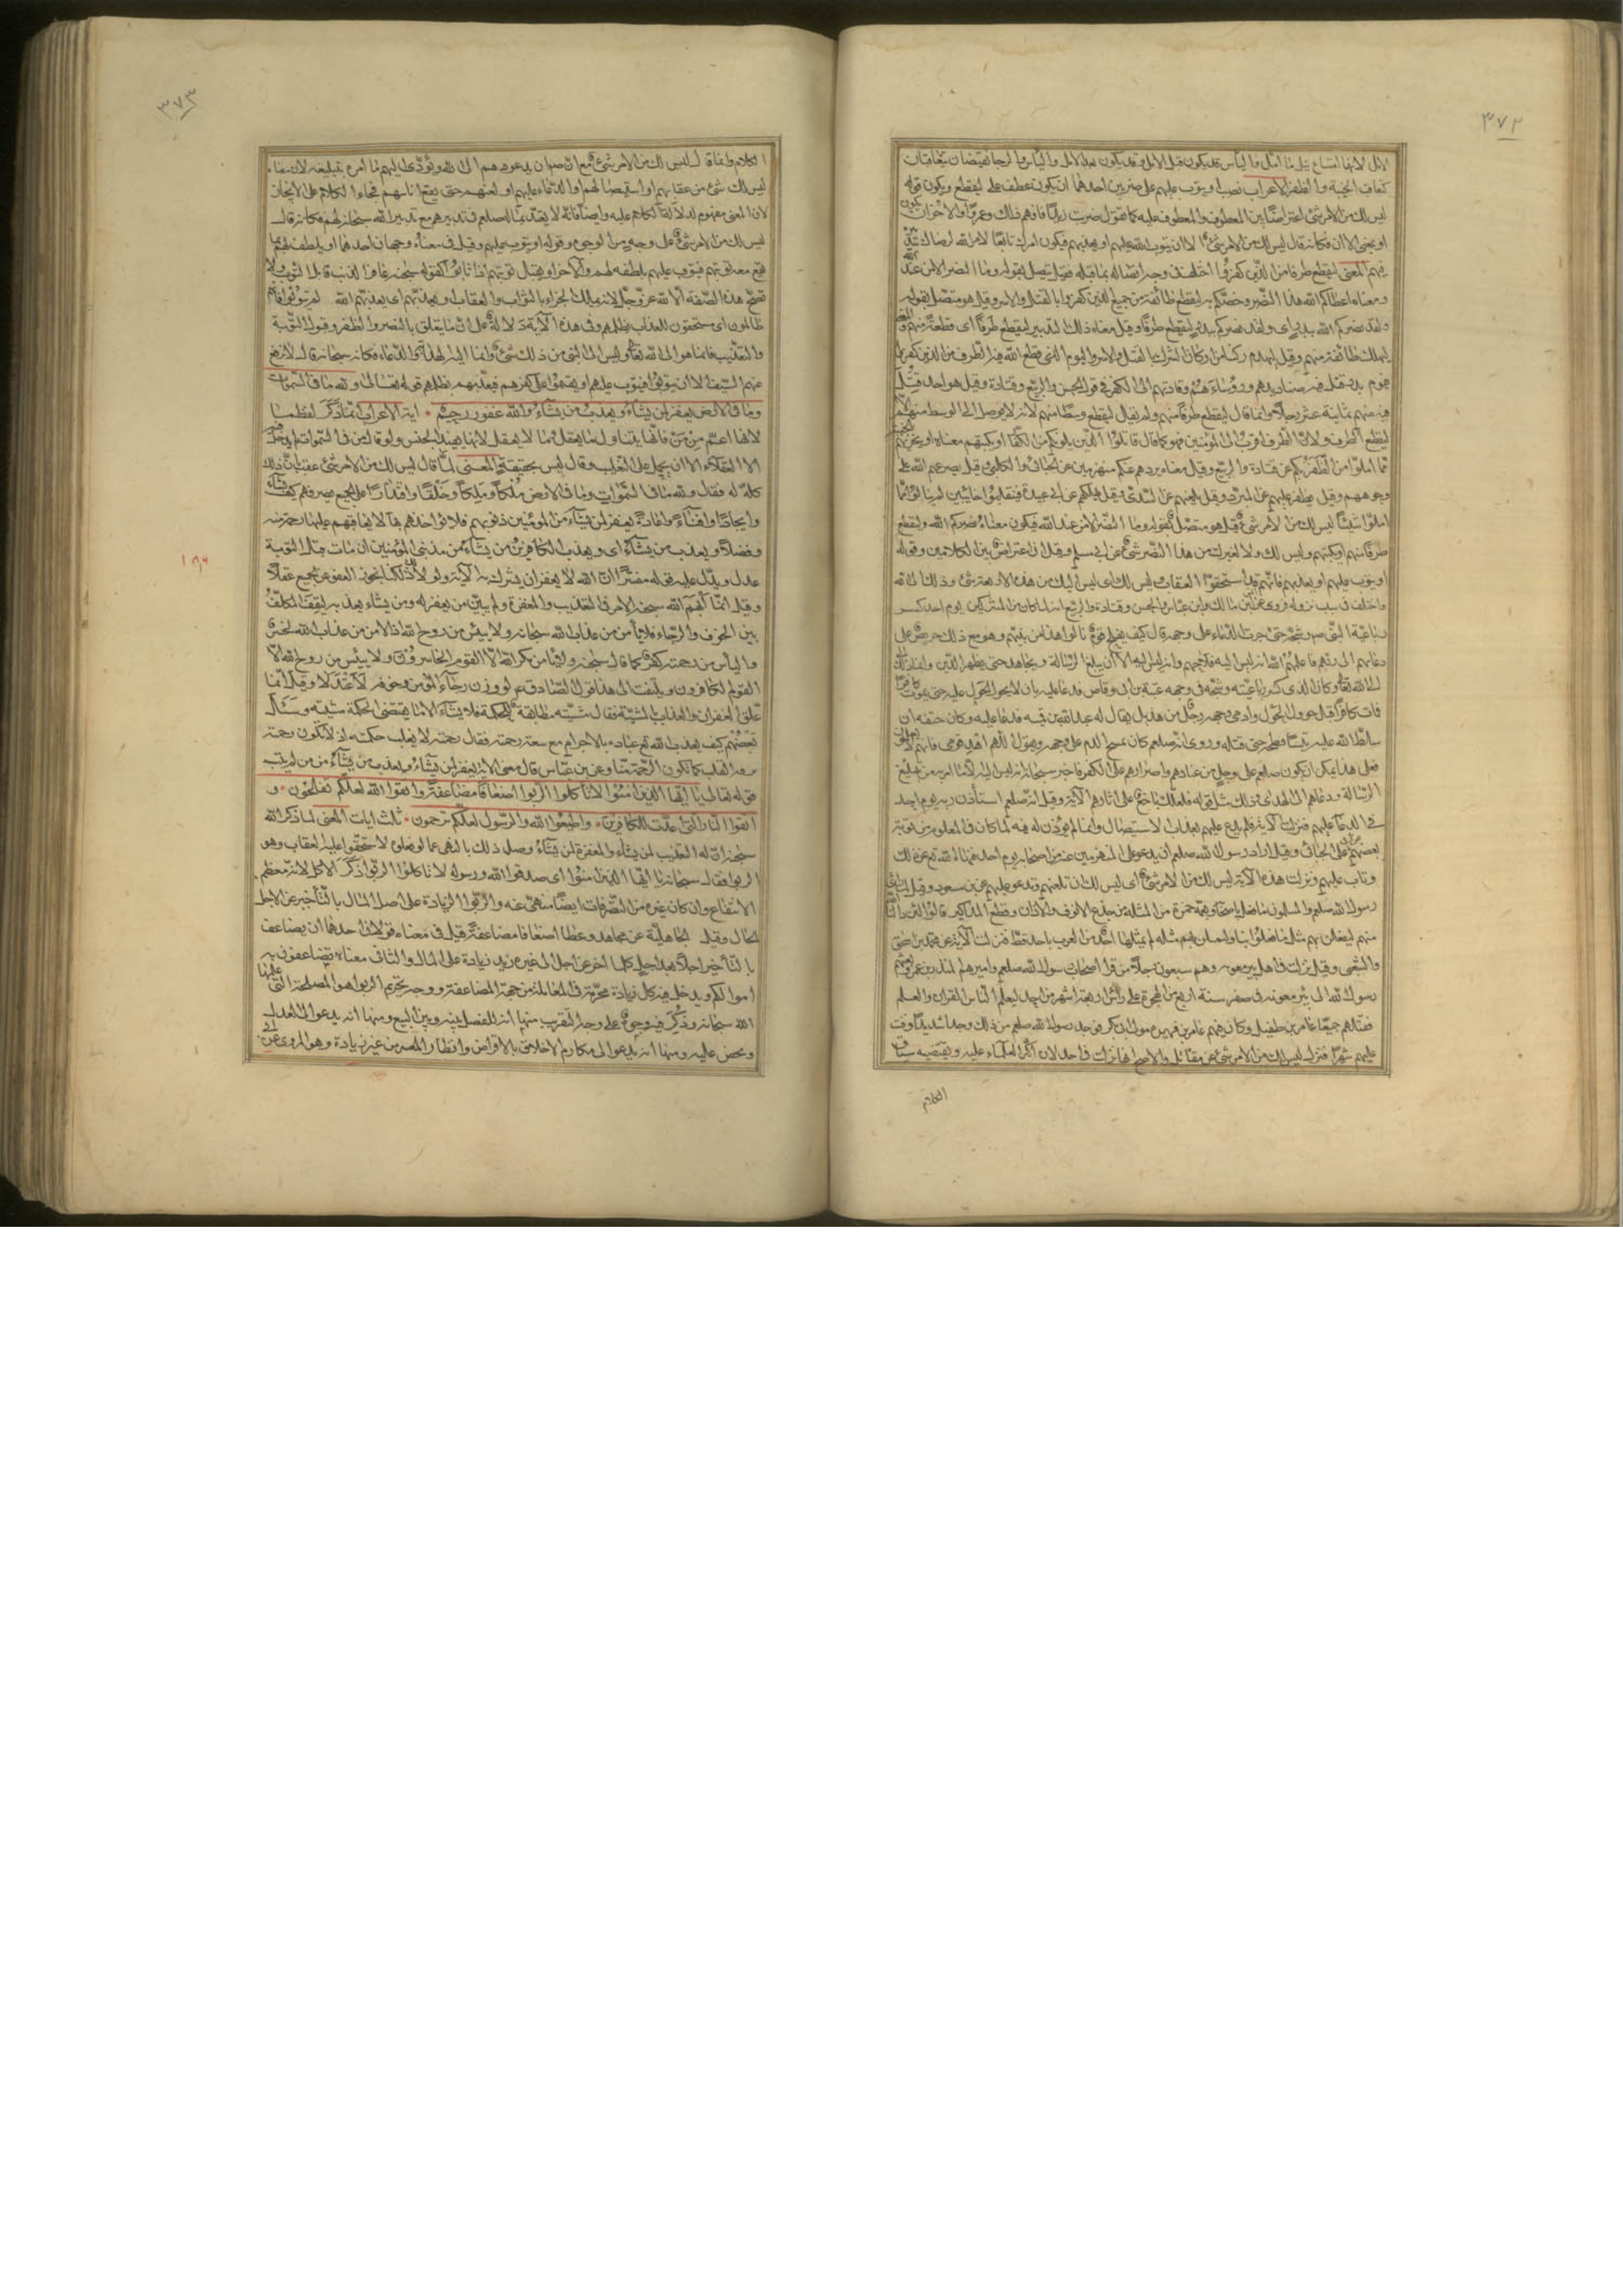 ٣٧٢
الامل لانها امتناع نيل ما امل فاليأس قد يكون قبل الامل وقد يكون بعد الامل واليأس والرجا نقيضان يتعاقبان
كتعاقب الخيبة والظفر الاعراب نصب او يتوب عليهم على ضربين احدهما ان يكون عطف على ليقطع ويكون قوله
ليس لك من الامر شئ اعتراضا بين المعطوف والمعطوف عليه كما تقول ضربت زيدا فافهم ذلك وعمرا والاخر ان يكون
او بمعنى الا ان فكانه قال ليس لك من الامر شئ الا ان يتوب الله عليهم او يعذبهم فيكون امرك تابعا لامر الله لرضاك بتدبيره
فيهم المعنى ليقطع طرفا من الذين كفروا اختلف في وجه اتصاله بما قبله فقيل يتصل بقوله وما النصر الا من عند الله
ومعناه اعطاكم الله هذا النصر وخصكم به ليقطع طائفة من جميع الذين كفروا بالقتل والاسر وقيل هو متصل بقوله
ولقد نصركم الله ببدر اي ولقد نصركم ببدر ليقطع طرفا وقيل معناه ذلك التدبير ليقطع طرفا اي قطعة منهم والمعنى
ليهلك طائفة منهم وقيل ليهدم ركنا من اركان الشرك بالقتل والاسر واليوم الذي قطع الله فيه الطرف من الذين كفروا
يوم بدر قتل فيه صناديدهم ورؤساءهم وقادتهم الى الكفر في قول الحسن والربيع وقتادة وقيل هو احد قتل
فيه منهم ثمانية عشر رجلا وانما قال ليقطع طرفا منهم ولم يقل ليقطع وسطا منهم لانه لا يوصل الى الوسط منهم الا
ليقطع الطرف ولان الطرف اقرب الى المؤمنين فهو كما قال قاتلوا الذين يلونكم من الكفار او يكبتهم معناه او يخزيهم
مما املوا من الظفر بكم عن قتادة والربيع وقيل معناه يردهم عنكم منهزمين عن الجبائي والكلبي وقيل يصرعهم الله على
وجوههم وقيل يظفر عليهم عن المبرد وقيل يلعنهم عن السدي وقيل يهلكهم عن ابي عبيدة فينقلبوا خائبين لم ينالوا مما
املوا شيئا ليس لك من الامر شئ قيل هو متصل بقوله وما النصر الا من عند الله فيكون معناه نصركم الله ليقطع
طرفا منهم او يكبتهم وليس لك ولا لغيرك من هذا النصر شئ عن ابي مسلم وقيل انه اعتراض بين الكلامين وقوله
او يتوب عليهم او يعذبهم فانهم قد استحقوا العقاب ليس لك اي ليس اليك من هذه الاربعة شئ وذلك الى الله
واختلف في سبب نزوله فروي عن انس بن مالك وابن عباس والحسن وقتادة والربيع انه لما كان من المشركين يوم احد كسر
رباعية النبي ص وشجه حتى جرت الدماء على وجهه قال كيف يفلح قوم نالوا هذا من نبيهم وهو مع ذلك حريص على
دعائهم الى ربهم فاعلمه الله انه ليس اليه فلاحهم وانه ليس اليه الا ان يبلغ الرسالة ويجاهد حتى يظهر الدين وانما ذلك
الى الله تعالى وكان الذي كسر رباعيته وشجه في وجهه عتبة بن ابي وقاص فدعا عليه بان لا يحول الحول عليه حتى يموت كافرا
فمات كافرا قبل حول الحول وادمى وجهه رجل من هذيل يقال له عبد الله بن قمية فدعا عليه وكان حتفه ان
سلط الله عليه تيسا فنطحه حتى قتله وروي انه صلعم كان يمسح الدم على وجهه ويقول اللهم اهد قومي فانهم لا يعلمون
فعلى هذا يمكن ان يكون صلعم على وجل من عنادهم واصرارهم على الكفر فاخبر سبحانه انه ليس اليه الا ما امر به من تبليغ
الرسالة ودعائهم الى الهدى وذلك مثل قوله فلعلك باخع على اثارهم الآية وقيل انه صلعم استأذن ربه يوم احد
في الدعاء عليهم فنزلت الآية فلم يدع عليهم بعذاب الاستيصال وانما لم يؤذن له فيه لما كان في المعلوم من توبة
بعضهم عن الجبائي وقيل اراد رسول الله صلعم ان يدعو على المنهزمين عنه من اصحابه يوم احد فنهاه الله تع عن ذلك
وتاب عليهم ونزلت هذه الآية ليس لك من الامر شئ اي ليس لك ان تلعنهم وتدعو عليهم عن ابن مسعود وقيل لما رأى
رسول الله صلعم والمسلمون ما فعل باصحابه وبعمه حمزة من المثلة من جذع الانوف والاذان وقطع المذاكير قالوا لئن ادالنا الله
منهم لنفعلن بهم مثل ما فعلوا بنا ولنمثلن بهم مثلة لم يمثلها احد من العرب باحد قط فنزلت الآية عن محمد بن اسحق
والشعبي وقيل نزلت في اهل بئر معونه وهم سبعون رجلا من قراء اصحاب رسول الله صلعم واميرهم المنذر بن عمرو بعثهم
رسول الله الى بئر معونه في صفر سنة اربع من الهجرة على رأس اربعة اشهر من احد ليعلموا الناس القرآن والعلم
فقتلهم جميعا عامر بن طفيل وكان فيهم عامر بن فهيرة مولى ابي بكر فوجد رسول الله صلعم من ذلك وجدا شديدا وقنت
عليهم شهرا فنزل ليس لك من الامر شئ عن مقاتل والاصح انها نزلت في احد لان اكثر العلماء عليه ويقتضيه سياق
الكلام
٣٧٣
الكلام وانما قال ليس لك من الامر شئ مع ان له ص ان يدعوهم الى الله ويؤدي اليهم ما امره بتبليغه لان معناه
ليس لك شئ من عقابهم او استيصالهم او الدعاء عليهم او لعنهم حتى يقع انابتهم فجاء الكلام على الايجاز
لان المعنى مفهوم لدلالة الكلام عليه وايضا فانه لا يعتد بما له صلعم في تدبيرهم مع تدبير الله سبحانه لهم فكانه قال
ليس لك من الامر شئ على وجه من الوجوه وقوله او يتوب عليهم وقيل في معناه وجهان احدهما او يلطف لهم بما
يقع معه توبتهم فيتوب عليهم بلطفه لهم والآخر او يقبل توبتهم اذا تابوا كقوله سبحانه غافر الذنب قابل التوب ولا
تصح هذه الصفة الا لله عز وجل لانه يملك الجزاء بالثواب والعقاب او يعذبهم اي يعذبهم الله ان لم يتوبوا فانهم
ظالمون اي مستحقون للعذاب بظلمهم وفي هذه الآية دلالة على ان ما يتعلق بالنصر والظفر وقبول التوبة
والتعذيب فانما هو الى الله تعالى وليس الى النبي من ذلك شئ وانما اليه الهداية والدعاء فكانه سبحانه قال لا ترفع
عنهم السيف الا ان يتوبوا فيتوب عليهم او يقيموا على كفرهم فيعذبهم بظلمهم قوله تعالى ولله ما في السموات
وما في الارض يغفر لمن يشاء ويعذب من يشاء والله غفور رحيم آية الاعراب انما ذكر لفظة ما
لانها اعم من من فانها يتناول ما يعقل وما لا يعقل لانها يفيد الجنس ولو قال من في السموات لم يدخل فيه
الا العقلاء الا ان يحمل على التغليب وقال ليس بحقيقة المعنى لما قال ليس لك من الامر شئ عقبه بان ذلك
كله له فقال ولله ما في السموات وما في الارض مُلكا ومِلكا وخلقا واقتدارا على الجميع يصرفهم كيف يشاء
وايجادا وافناء واعادة يغفر لمن يشاء من المؤمنين ذنوبهم فلا يؤاخذهم بها ولا يعاقبهم عليها رحمة منه
وفضلا ويعذب من يشاء اي ويعذب الكافرين من يشاء من مذنبي المؤمنين ان مات قبل التوبة
عدلا ويدل عليه قوله مفسرا ان الله لا يغفر ان يشرك به الآية ولولا ذلك لكنا نجوز العفو عن الجميع عقلا
وقيل انما ابهم الله سبحانه الامر في التعذيب والمغفرة ولم يبين من يغفر له ومن يشاء يعذبه ليقف المكلف
بين الخوف والرجاء فلا يأمن من عذاب الله سبحانه ولا ييئس من روح الله فالامن من عذاب الله خسر
واليأس من رحمته كفر كما قال سبحانه ولا يأمن مكر الله الا القوم الخاسرون ولا ييئس من روح الله الا
القوم الكافرون ويلتفت الى هذا قول الصادق ع لو وزن رجاء المؤمن وخوفه لاعتدلا وقيل انما
علق الغفران والعذاب بالمشية فقال مشيته مطابقة للحكمة فلا يشاء الا ما يقتضي الحكمة مشيته وسئل
بعضهم كيف يعذب الله تع عباده بالاجرام مع سعة رحمته فقال رحمته لا يغلب حكمته اذ لا تكون رحمته
برقة القلب كما تكون الرحمة منا وعن ابن عباس قال معنى الآية يغفر لمن يشاء ويعذب من يشاء من من لم يتب
قوله تعالى يا ايها الذين امنوا لا تأكلوا الربوا اضعافا مضاعفة واتقوا الله لعلكم تفلحون و
اتقوا النار التي اعدت للكافرين واطيعوا الله والرسول لعلكم ترحمون ثلث ايات المعنى لما ذكر الله
سبحانه ان له التعذيب لمن يشاء والمغفرة لمن يشاء وصل ذلك بالنهي عما لو فعلوه لاستحقوا عليه العقاب وهو
الربوا فقال سبحانه يا ايها الذين امنوا اي صدقوا الله ورسوله لا تأكلوا الربوا ذكر الاكل لانه معظم
الانتفاع وان كان غيره من التصرفات ايضا منهي عنه والربوا الزيادة على اصل المال بالتأخير عن الاجل
الحال وقيل الجاهلية عن مجاهد وعطا اضعافا مضاعفة قيل في معناه قولان احدهما ان يضاعف
بالتأخير اجلا بعد اجل كلما اخر عن اجل الى غيره زيد زيادة على المال والثاني معناه تضاعفون به
اموالكم ويدخل فيه كل زيادة محرمة في المعاملة من جهة المضاعفة ووجه تحريم الربوا هو المصلحة التي علمها
الله سبحانه وذكر فيه وجوه على وجه التقريب منها انه للفصل بينه وبين البيع ومنها انه يدعو الى العدل
ويحض عليه ومنها انه يدعو الى مكارم الاخلاق بالاقراض وانظار المعسر من غير زيادة وهو المروي عن ابي